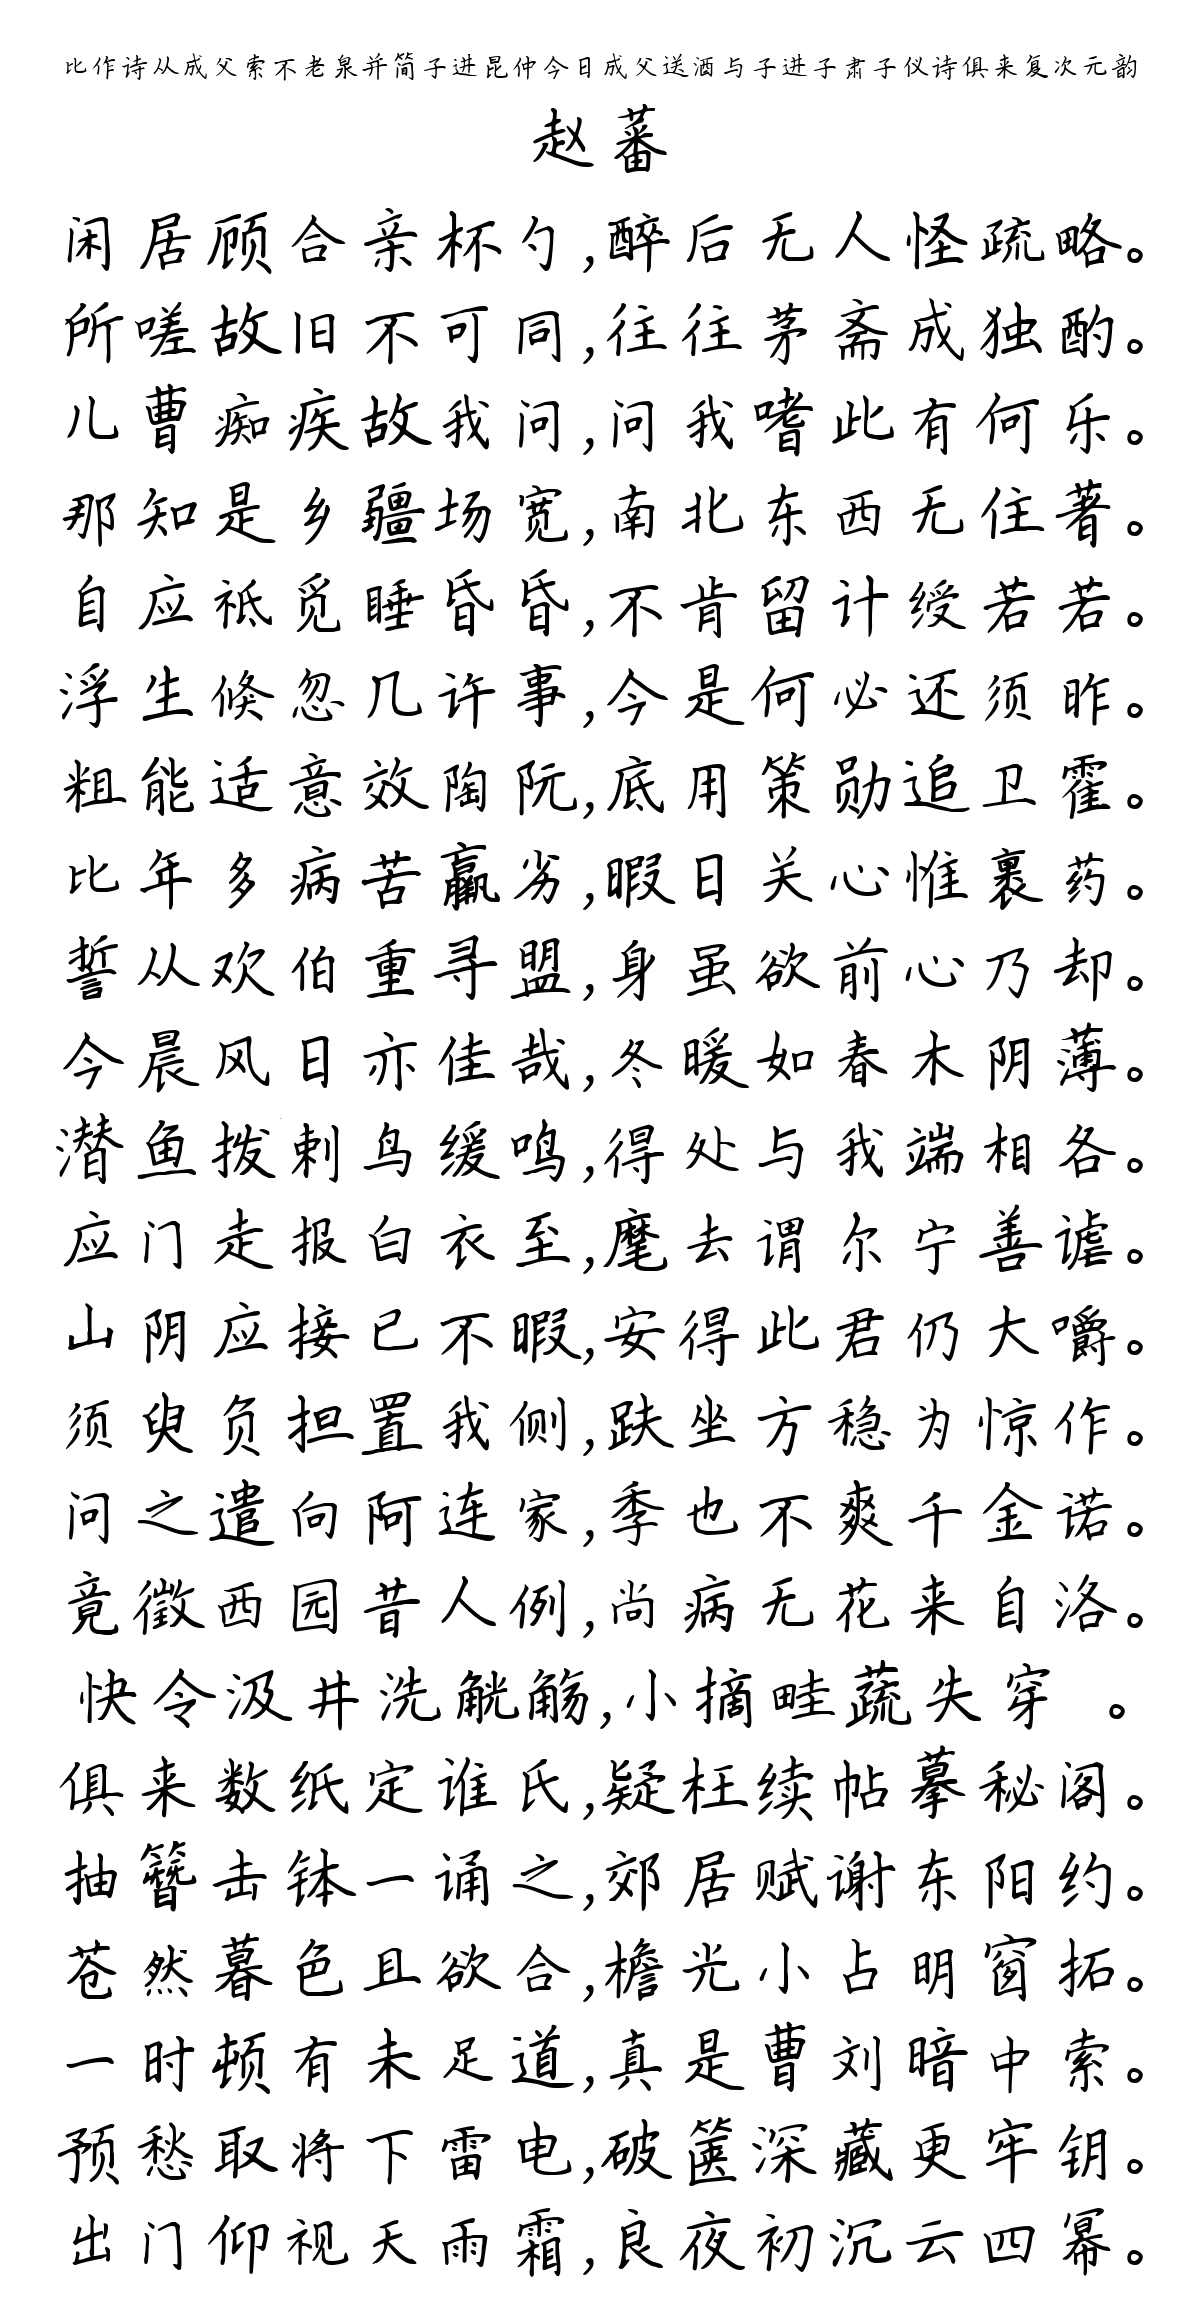 比作诗从成父索不老泉并简子进昆仲今日成父送酒与子进子肃子仪诗俱来复次元韵
赵蕃
闲居顾合亲杯勺,醉后无人怪疏略。
所嗟故旧不可同,往往茅斋成独酌。
儿曹痴疾故我问,问我嗜此有何乐。
那知是乡疆场宽,南北东西无住著。
自应祗觅睡昏昏,不肯留计绶若若。
浮生倏忽几许事,今是何必还须昨。
粗能适意效陶阮,底用策勋追卫霍。
比年多病苦羸劣,暇日关心惟裹药。
誓从欢伯重寻盟,身虽欲前心乃却。
今晨风日亦佳哉,冬暖如春木阴薄。
潜鱼拨剌鸟缓鸣,得处与我端相各。
应门走报白衣至,麾去谓尔宁善谑。
山阴应接已不暇,安得此君仍大嚼。
须臾负担置我侧,趺坐方稳为惊作。
问之遣向阿连家,季也不爽千金诺。
竟徵西园昔人例,尚病无花来自洛。
快令汲井洗觥觞,小摘畦蔬失穿 。
俱来数纸定谁氏,疑枉续帖摹秘阁。
抽簪击钵一诵之,郊居赋谢东阳约。
苍然暮色且欲合,檐光小占明窗拓。
一时顿有未足道,真是曹刘暗中索。
预愁取将下雷电,破箧深藏更牢钥。
出门仰视天雨霜,良夜初沉云四幂。